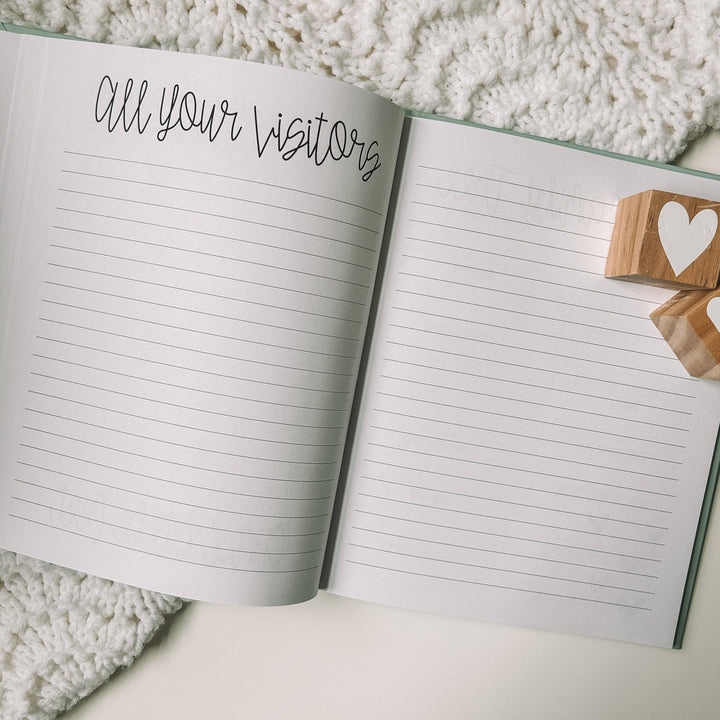 All Your Visitors